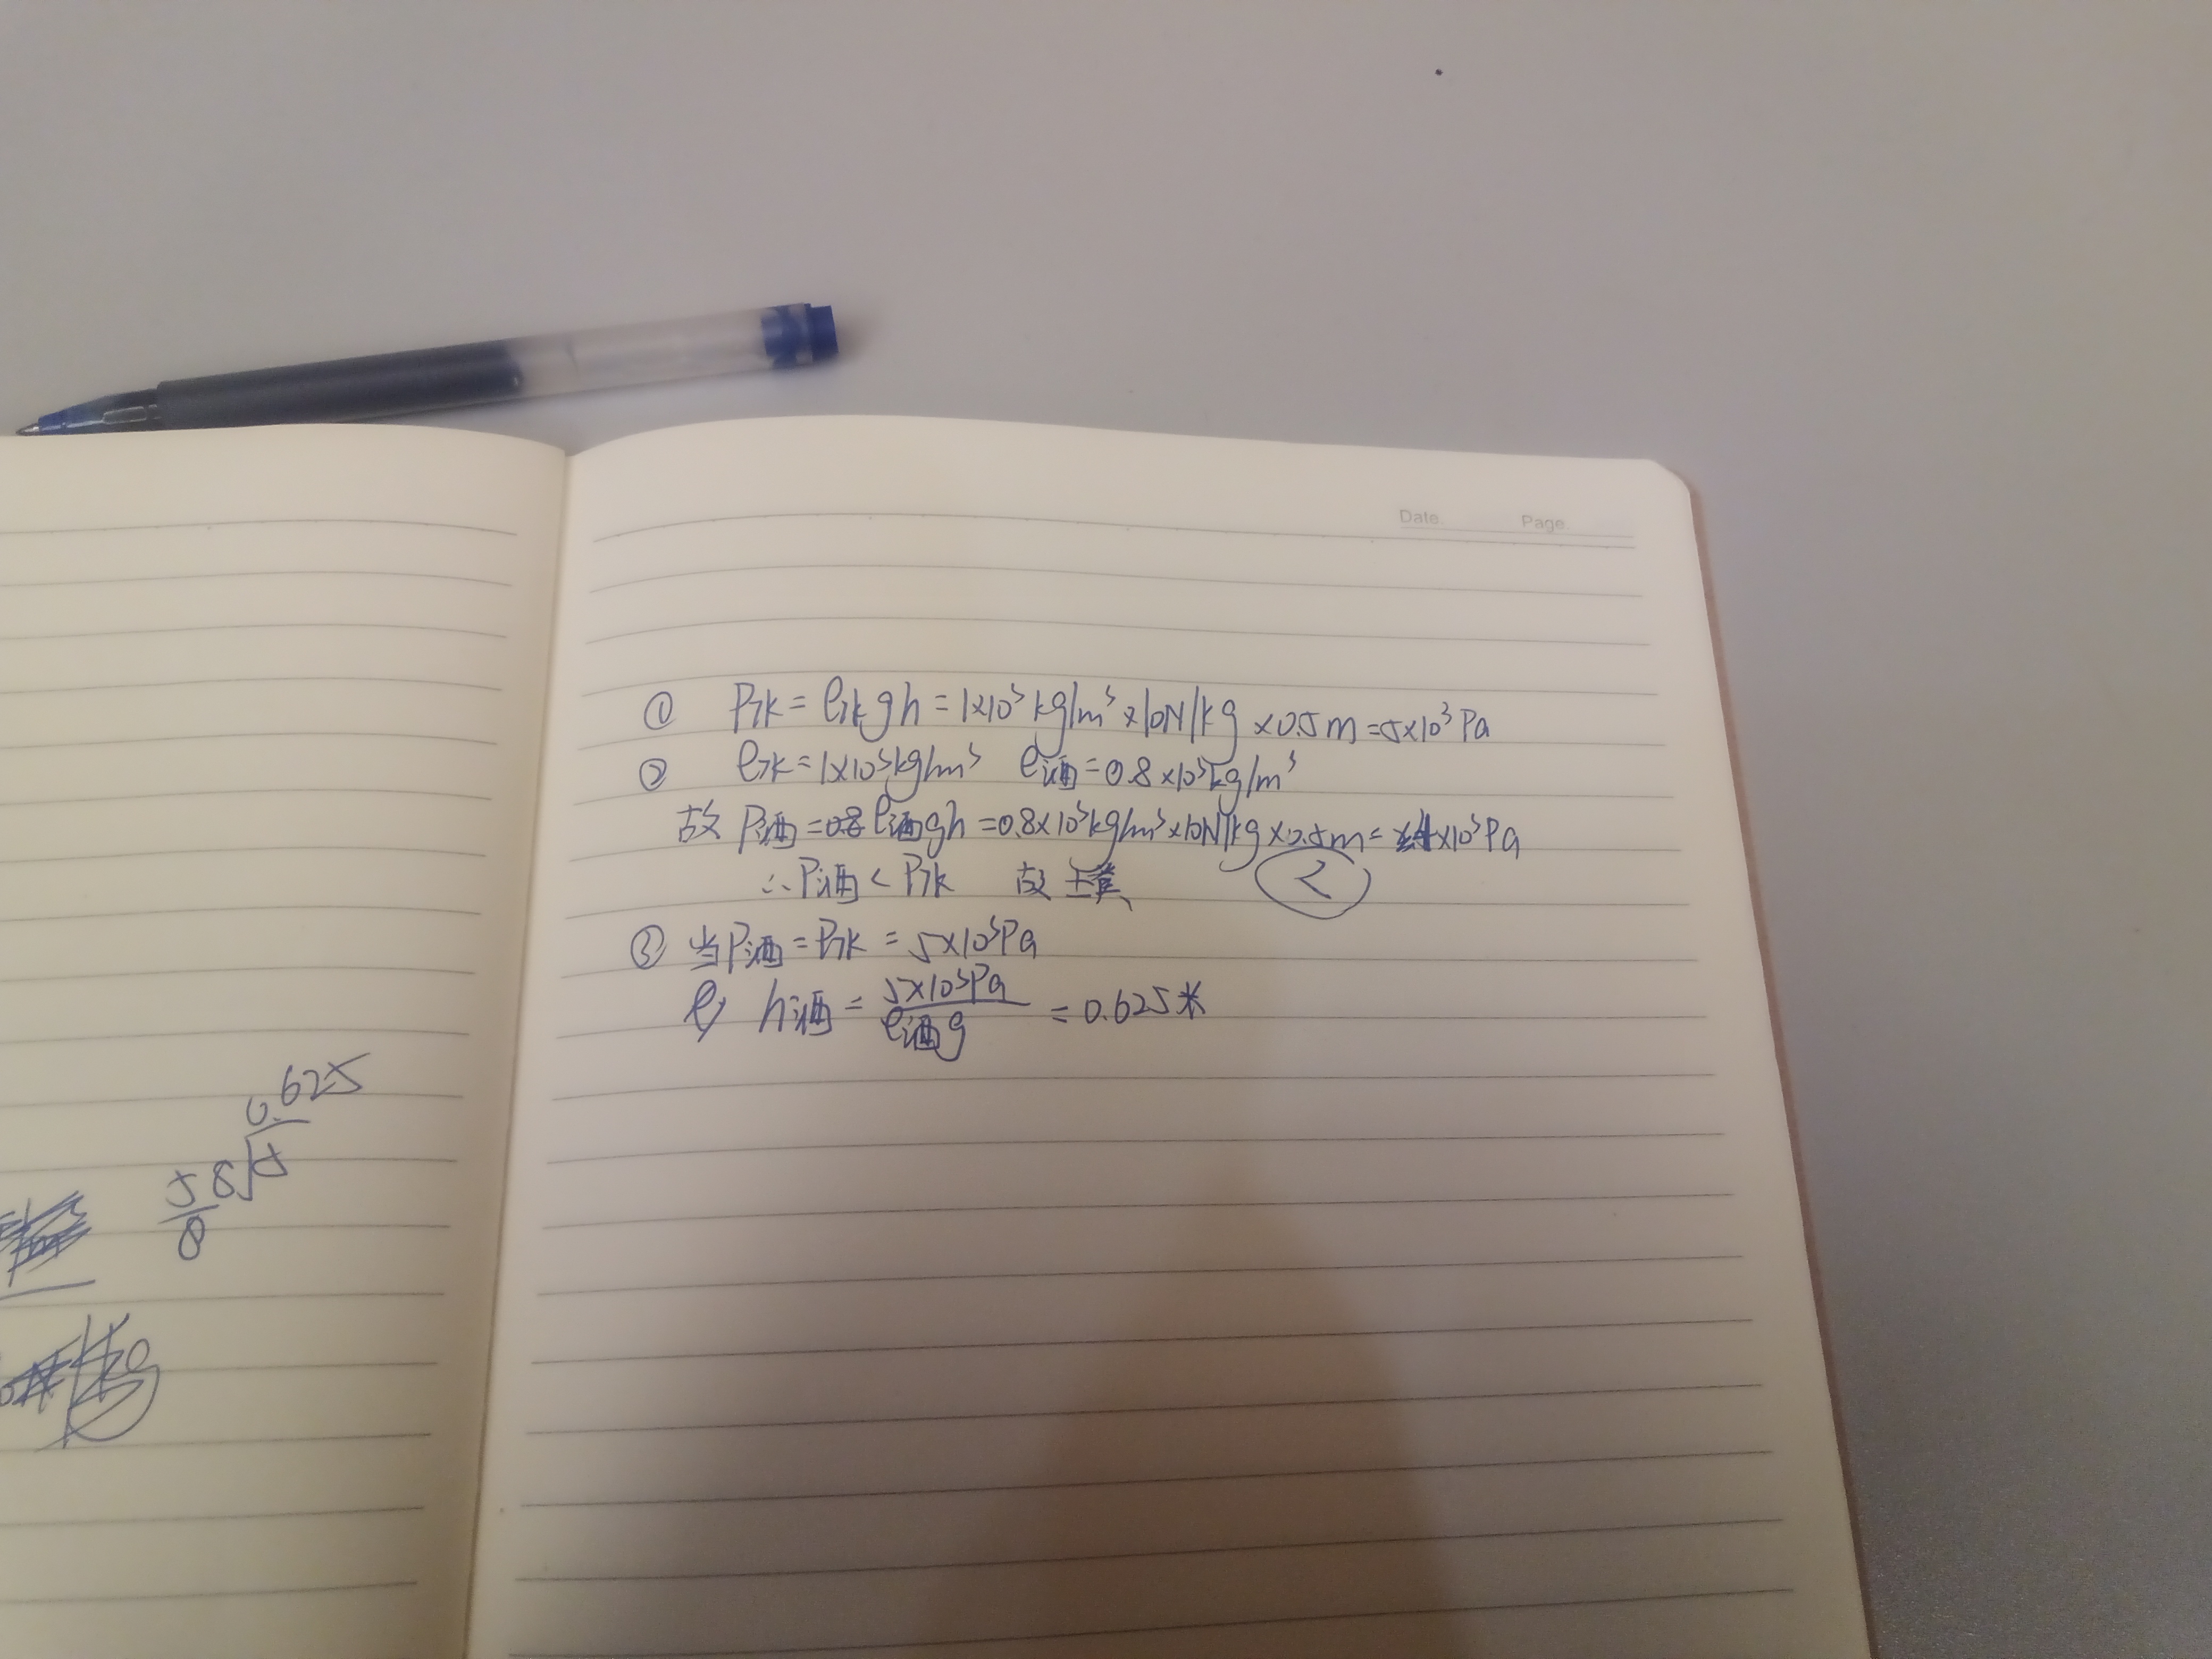 Date. Page.
① P水=ρ水gh=1×10³kg/m³×10N/kg×0.5m=5×10³Pa
② ρ水=1×10³kg/m³ ρ酒=0.8×10³kg/m³
故P酒=ρ酒gh=0.8×10³kg/m³×10N/kg×0.5m=4×10³Pa
∴P酒<P水 故填 <
③ 当P酒=P水=5×10³Pa
h酒=5×10³Pa/ρ酒g=0.625米
0.625
5/8 8√5